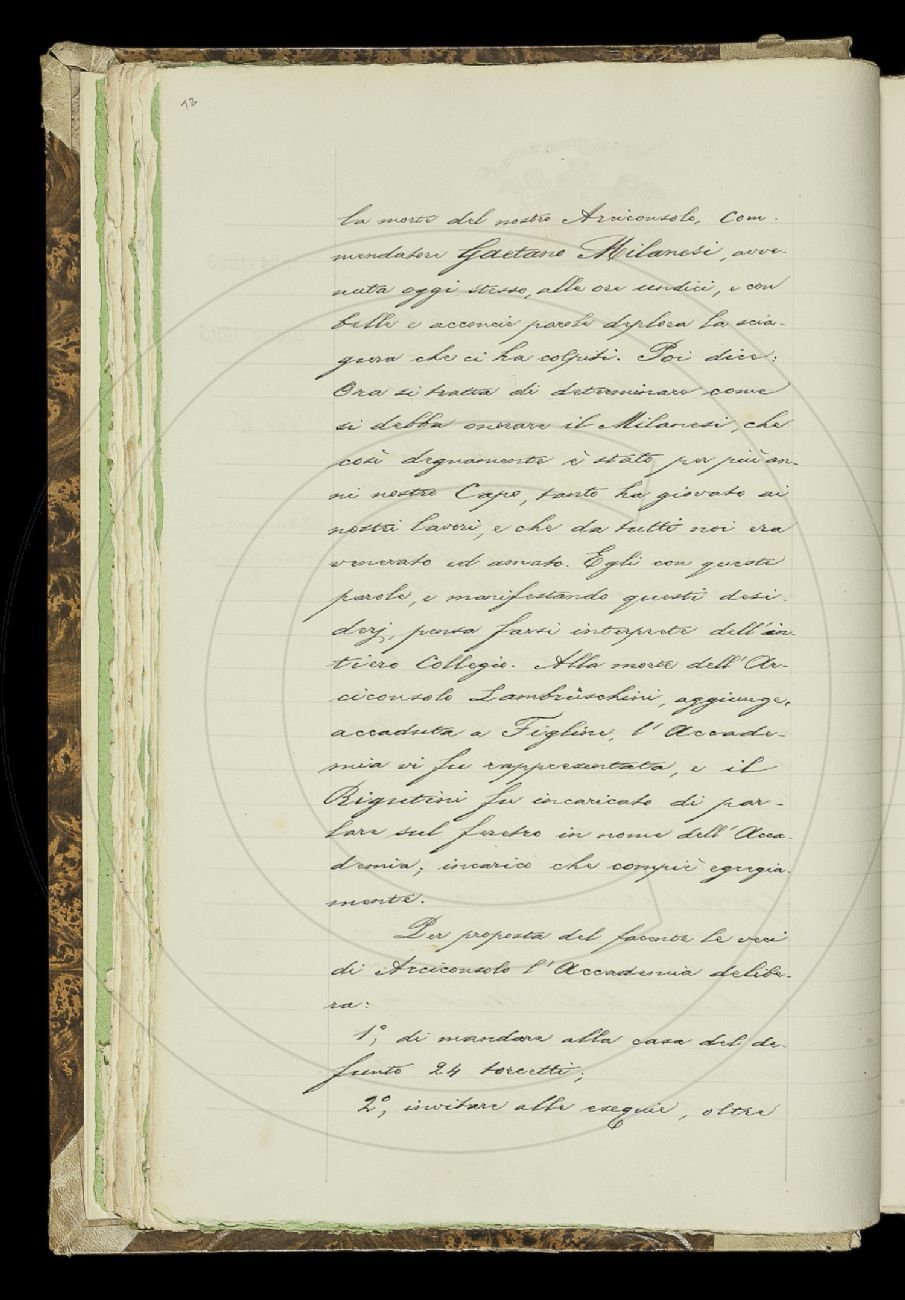 12
la morte del nostro Arciconsolo, Com-
mendatore Gaetano Milanesi, avve-
nuta oggi stesso, alle ore undici, e con
belle e acconcie parole deplora la scia-
gura che ci ha colpiti. Poi dice:
Ora si tratta di determinare come
si debba onorare il Milanesi, che
così degnamente è stato per più an-
ni nostro Capo, tanto ha giovato ai
nostri lavori, e che da tutti noi era
venerato ed amato. Egli con queste
parole, e manifestando questi desi-
derj, pensa farsi interprete dell'in-
tiero Collegio. Alla morte dell'Ar-
ciconsolo Lambruschini, aggiunge,
accaduta a Figline, l'Accade-
mia vi fu rappresentata, e il
Rigutini fu incaricato di par-
lare sul feretro in nome dell'Acca-
demia; incarico che compiè egregia-
mente.
Per proposta del facente le veci
di Arciconsolo l'Accademia delibe-
ra:
1º, di mandare alla casa del de-
funto 24 torcetti;
2º, invitare alle esequie, oltre